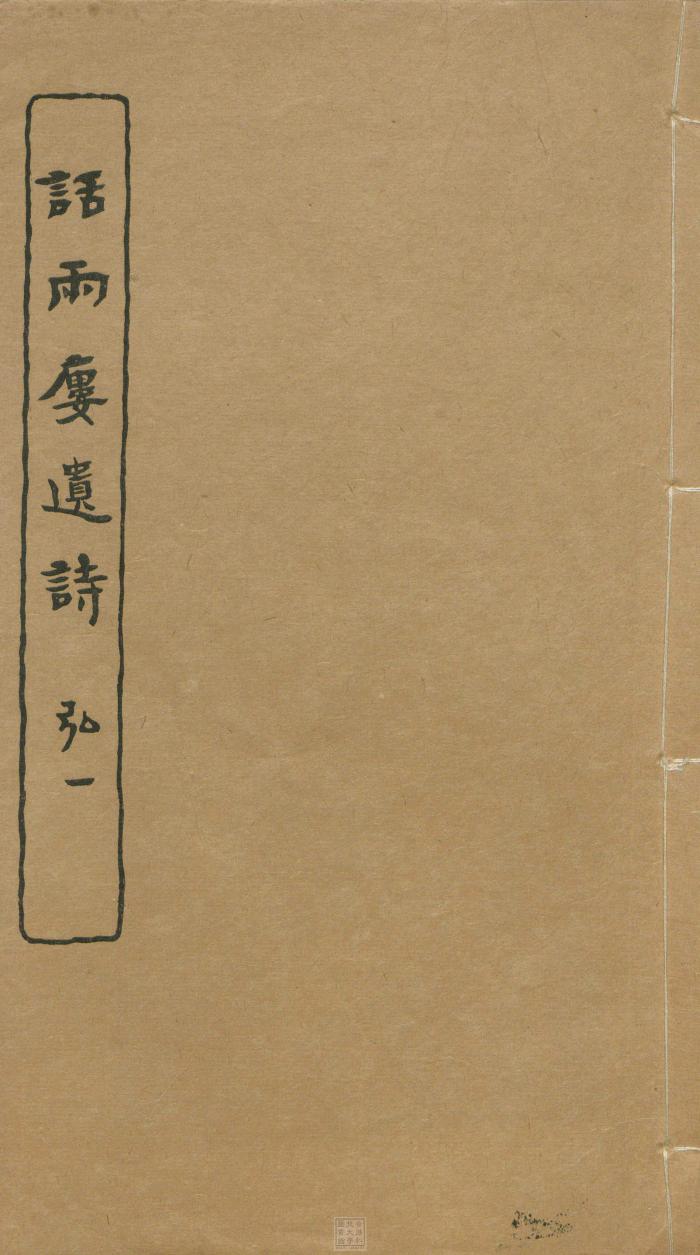 話雨廔遺詩 弘一